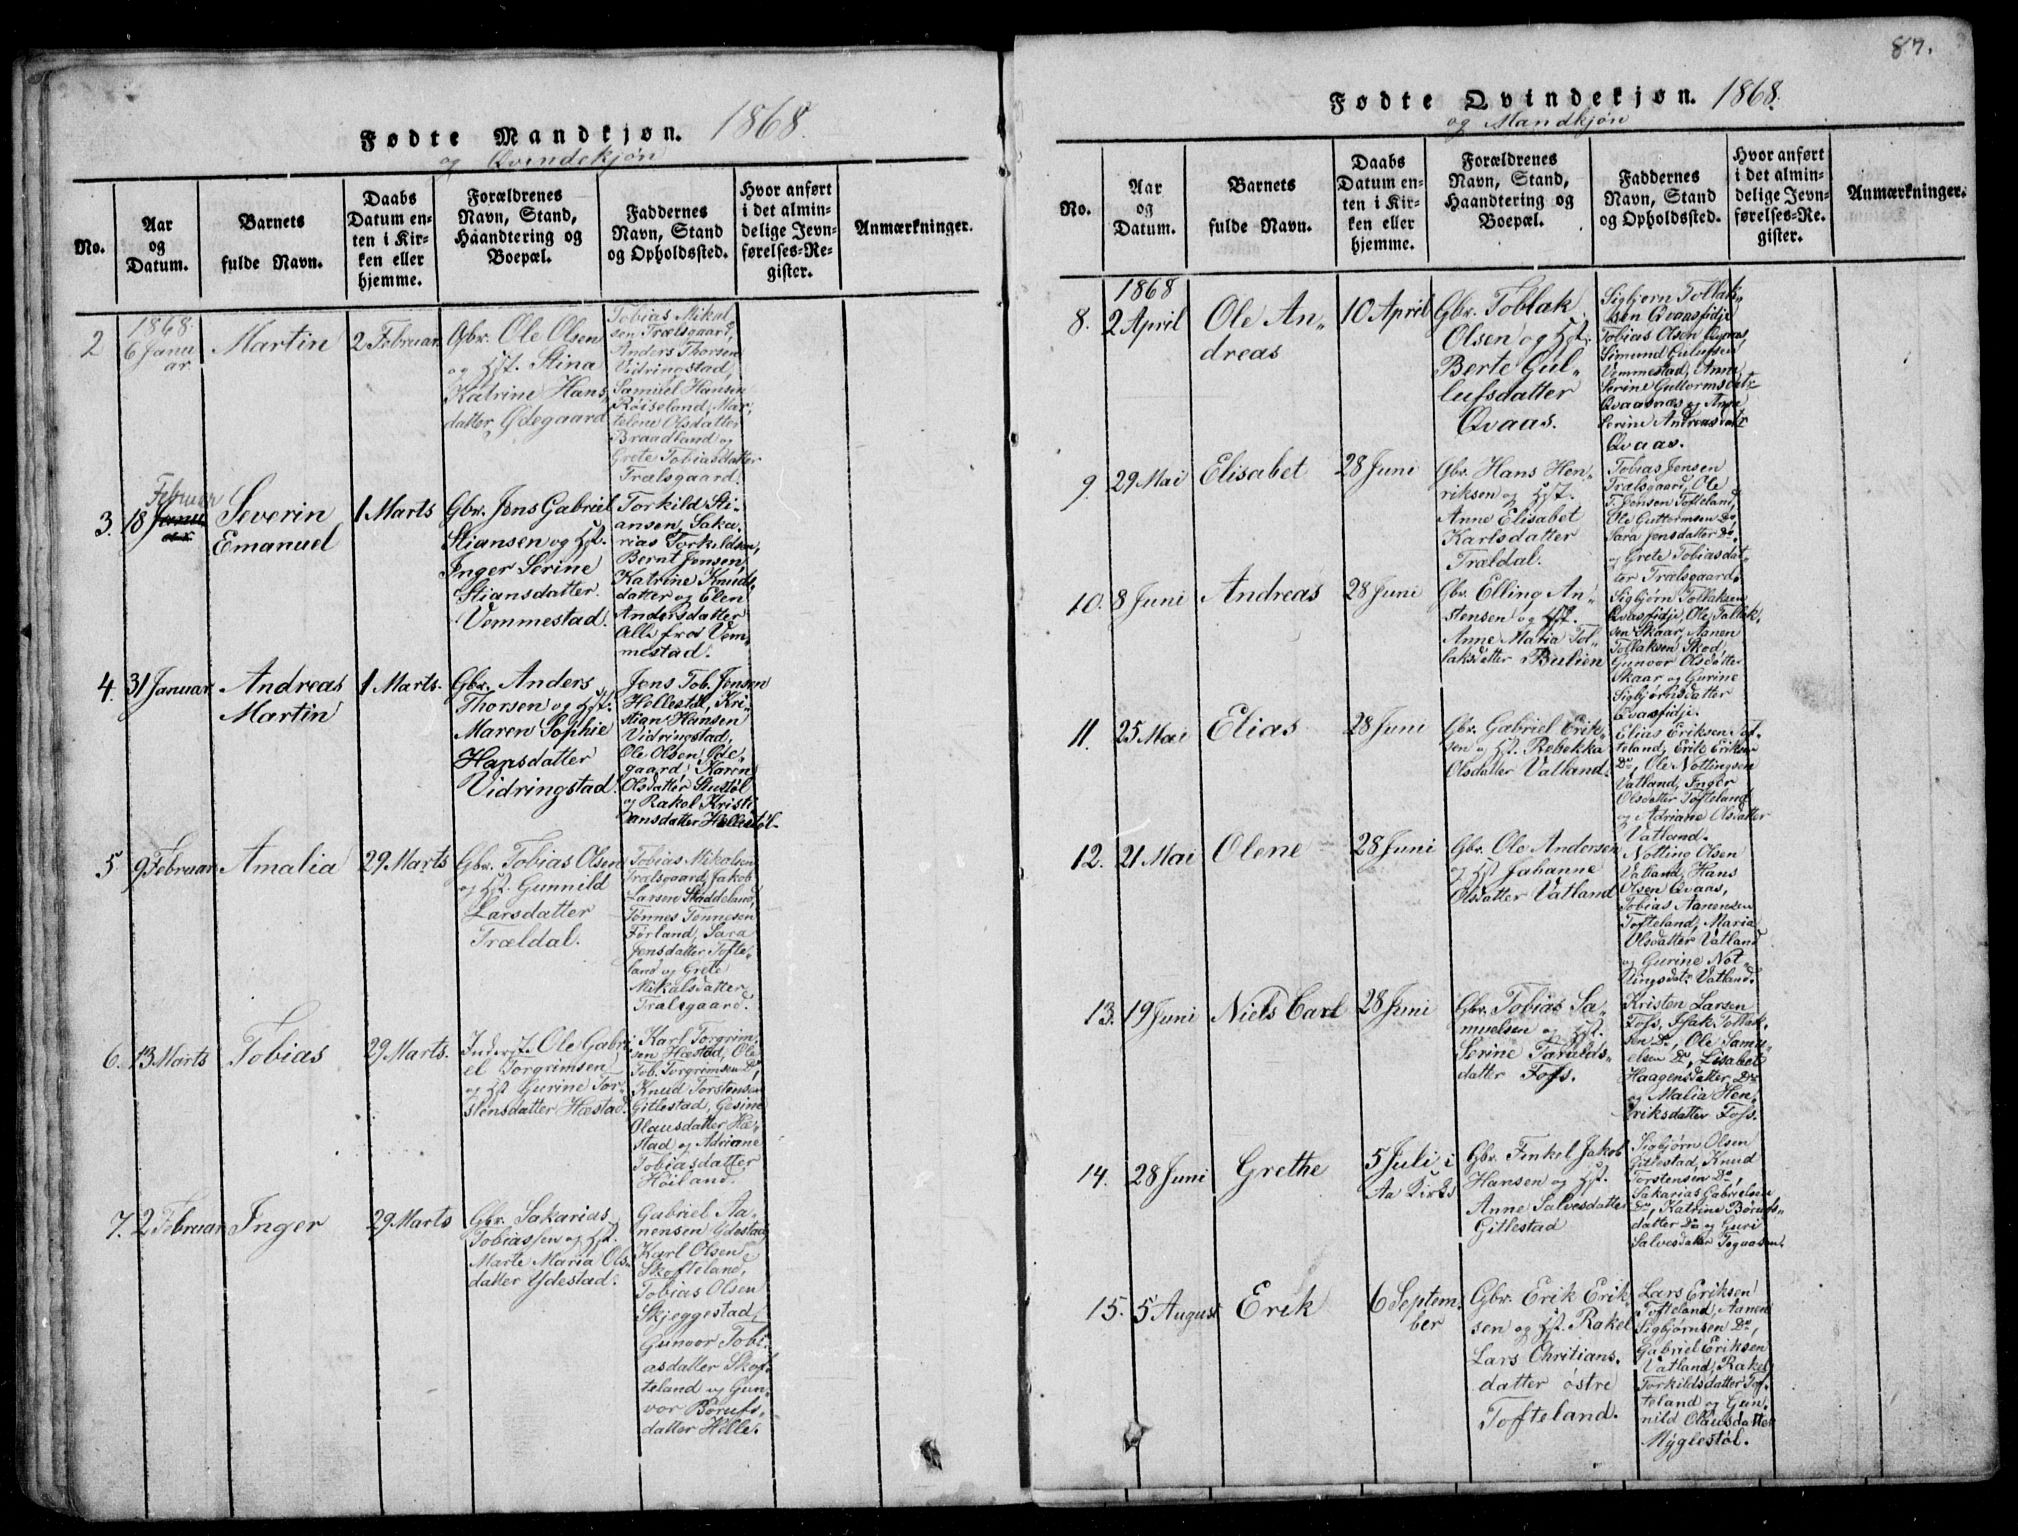 Fødte Mandkjøn. 1868.
og Qvindekjøn
No.
Aar
og
Datum.
Barnets
fulde Navn.
Daabs
Datum en-
ten i Kir-
ken eller
hjemme.
Forældrenes
Navn, Stand,
Haandtering og
Boepæl.
Faddernes
Navn, Stand
og Opholdssted.
Hvor anført
i det almin-
delige Jevn-
førelses-Re-
gister.
Anmærkninger.
2
1868.
6 Janu
ar
Martin
2 Februar.
Gbr. Ole Olsen
og Hst. Stina
Katrine Hans-
datter Ødegaard
Tobias Mikal
sen Trælsgaard,
Anders Thorsen
Vidringstad,
Samuel Hansen
Røiseland, Mar-
telene Olsdatter
Braadland og
Grete Tobiasdatter
Trælsgaard.
3.
Februar
18
Severin
Emanuel
1 Marts
Gbr. Jens Gabriel
Stiansen og Hst.
Inger Serine
Stiansdatter
Vemmestad.
Torkild Sti-
ansen, Saka-
rias Torkildsen,
Bernt Jensen,
Katrine Knuds
datter og Elen
Andersdatter
Alle fra Vem-
mestad.
4.
31 Januar
Andreas
Martin
1 Marts.
Gbr. Anders
Thorsen og Hst.
Maren Sophie
Hansdatter
Vidringstad.
Jens Tob. Jensen
Hellestøl, Kri-
stian Hansen
Vidringstad,
Ole Olsen Øde-
gaard, Karen
Olsdatter Stustøl
og Rakel Kristi
ansdatter Hellestøl.
5
9 Februar
Amalia
29 Marts
Gbr. Tobias Olsen
og Hst. Gunnild
Larsdatter
Trældal.
Tobias Mikalsen
Trælsgaard, Jakob
Larsen Staddeland,
Tønnes Tønnesen
Førland, Sara
Jensdatter Tofte-
land og Grete
Mikalsdatter
Trælsgaard.
6.
13 Marts
Tobias
29 Marts.
Inderst. Ole Gabri-
el Torgrimsen
og Hst Gurine Tor-
stensdatter Hæstad.
Karl Torgrim-
sen Hæstad, Ole
Tob. Torgrimsen Do,
Knud Torstensen
Gitlestad, Gesine
Olausdatter Hæ-
stad og Adriane
Tobiasdatter
Høiland.
7.
2 Februar
Inger
29 Marts
Gbr. Sakarias
Tobiassen og Hst.
Marte Maria Ols-
datter Ydestad.
Gabriel Aa-
nensen Ydestad
Karl Olsen
Skofteland,
Tobias Olsen
Skjeggestad,
Gunvor Tobi-
asdatter Skof-
teland og Gun-
vor Børufs-
datter Hølle.
87.
Fødte Qvindekjøn. 1868.
og Mandkjøn
No.
Aar
og
Datum.
Barnets
fulde Navn.
Daabs
Datum en-
ten i Kir-
ken eller
hjemme.
Forældrenes
Navn, Stand,
Haandtering og
Boepæl.
Faddernes
Navn, Stand
og Opholdssted.
Hvor anført
i det almin-
delige Jevn-
førelses-Re-
gister.
Anmærkninger.
8.
1868
2 April
Ole An-
dreas
10 April
Gbr. Toblak
Olsen og Hst.
Berte Gul-
lufsdatter
Qvaas.
Sigbjørn Tollak-
sen Qvaasfidje
Tobias Olsen Qvaas,
Simund Gulufsen
Vemmestad, Anne
Serine Guttormsdatr
Qvaasnæs og Anne
Serine Andreasdatr
Qvaas.
9.
29 Mai
Elisabet
28 Juni
Gbr. Hans Hen-
riksen og Hst.
Anne Elisabet
Karlsdatter
Trældal.
Tobias Jensen
Trælsgaard, Ole
T. Jensen Tofteland,
Ole Guttormsen Do,
Sara Jensdatter Do
og Grete Tobiasdat-
ter Trælsgaard.
10.
8 Juni
Andreas
28 Juni
Gbr. Elling An-
stensen og Hst.
Anne Maria Tol-
laksdatter Bulien
Sigbjørn Tollaksen
Qvaasfidje, Ole Tallak-
sen Skaar, Aanen
Tollaksen Skod,
Gunvor Olsdatter
Skaar og Gurine
Sigbjørnsdatter
Qvaasfidje.
11.
25 Mai
Elias
28 Juni
Gbr. Gabriel Erik-
sen og Hst. Rebekka
Olsdatter Vatland.
Elias Eriksen Tof-
teland, Erik Eriksen
Do, Ole Nottingsen
Vatland, Inger
Olsdatter Tofteland
og Adriane Olsdatter
Vatland.
12.
21 Mai
Olene
28 Juni
Gbr. Ole Andersen
og Hst Johanne
Olsdatter Vatland
Notting Olsen
Vatland, Hans
Olsen Qvaas,
Tobias Aanensen
Tofteland, Maria
Olsdatter Vatland
og Gurine Not-
tingsdatr Vatland.
13.
19 Juni
Niels Carl
28 Juni
Gbr. Tobias Sa-
muelsen og Hst.
Serine Taralds-
datter Foss.
Kristen Larsen
Foss, Isak Tollak-
sen Do, Ole Samu-
elsen Do, Lisabet
Haagensdatter Do
og Malia Hen-
riksdatter Foss.
14.
28 Juni
Grethe
5 Juli i
Aa Kirke
Gbr. Finkel Jakob
Hansen og Hst.
Anne Salvesdatter
Gitlestad
Sigbjørn Olsen
Gitlestad, Knud
Torstensen Do,
Sakarias Gabrielsen
Do, Katrine Børufs-
datter Do og Guri
Salvesdatter Fogaasen.
15.
5 August
Erik
6 Septem-
ber
Gbr. Erik Erik-
sen og Hst. Rakel
Lars Chritians.
datter østre
Tofteland.
Lars Eriksen
Tofteland, Aanen
Sigbjørnsen Do,
Gabriel Eriksen
Vatland, Rakel
Torkildsdatter Tof-
teland og Gun-
nild Olausdatter
Myglestøl.